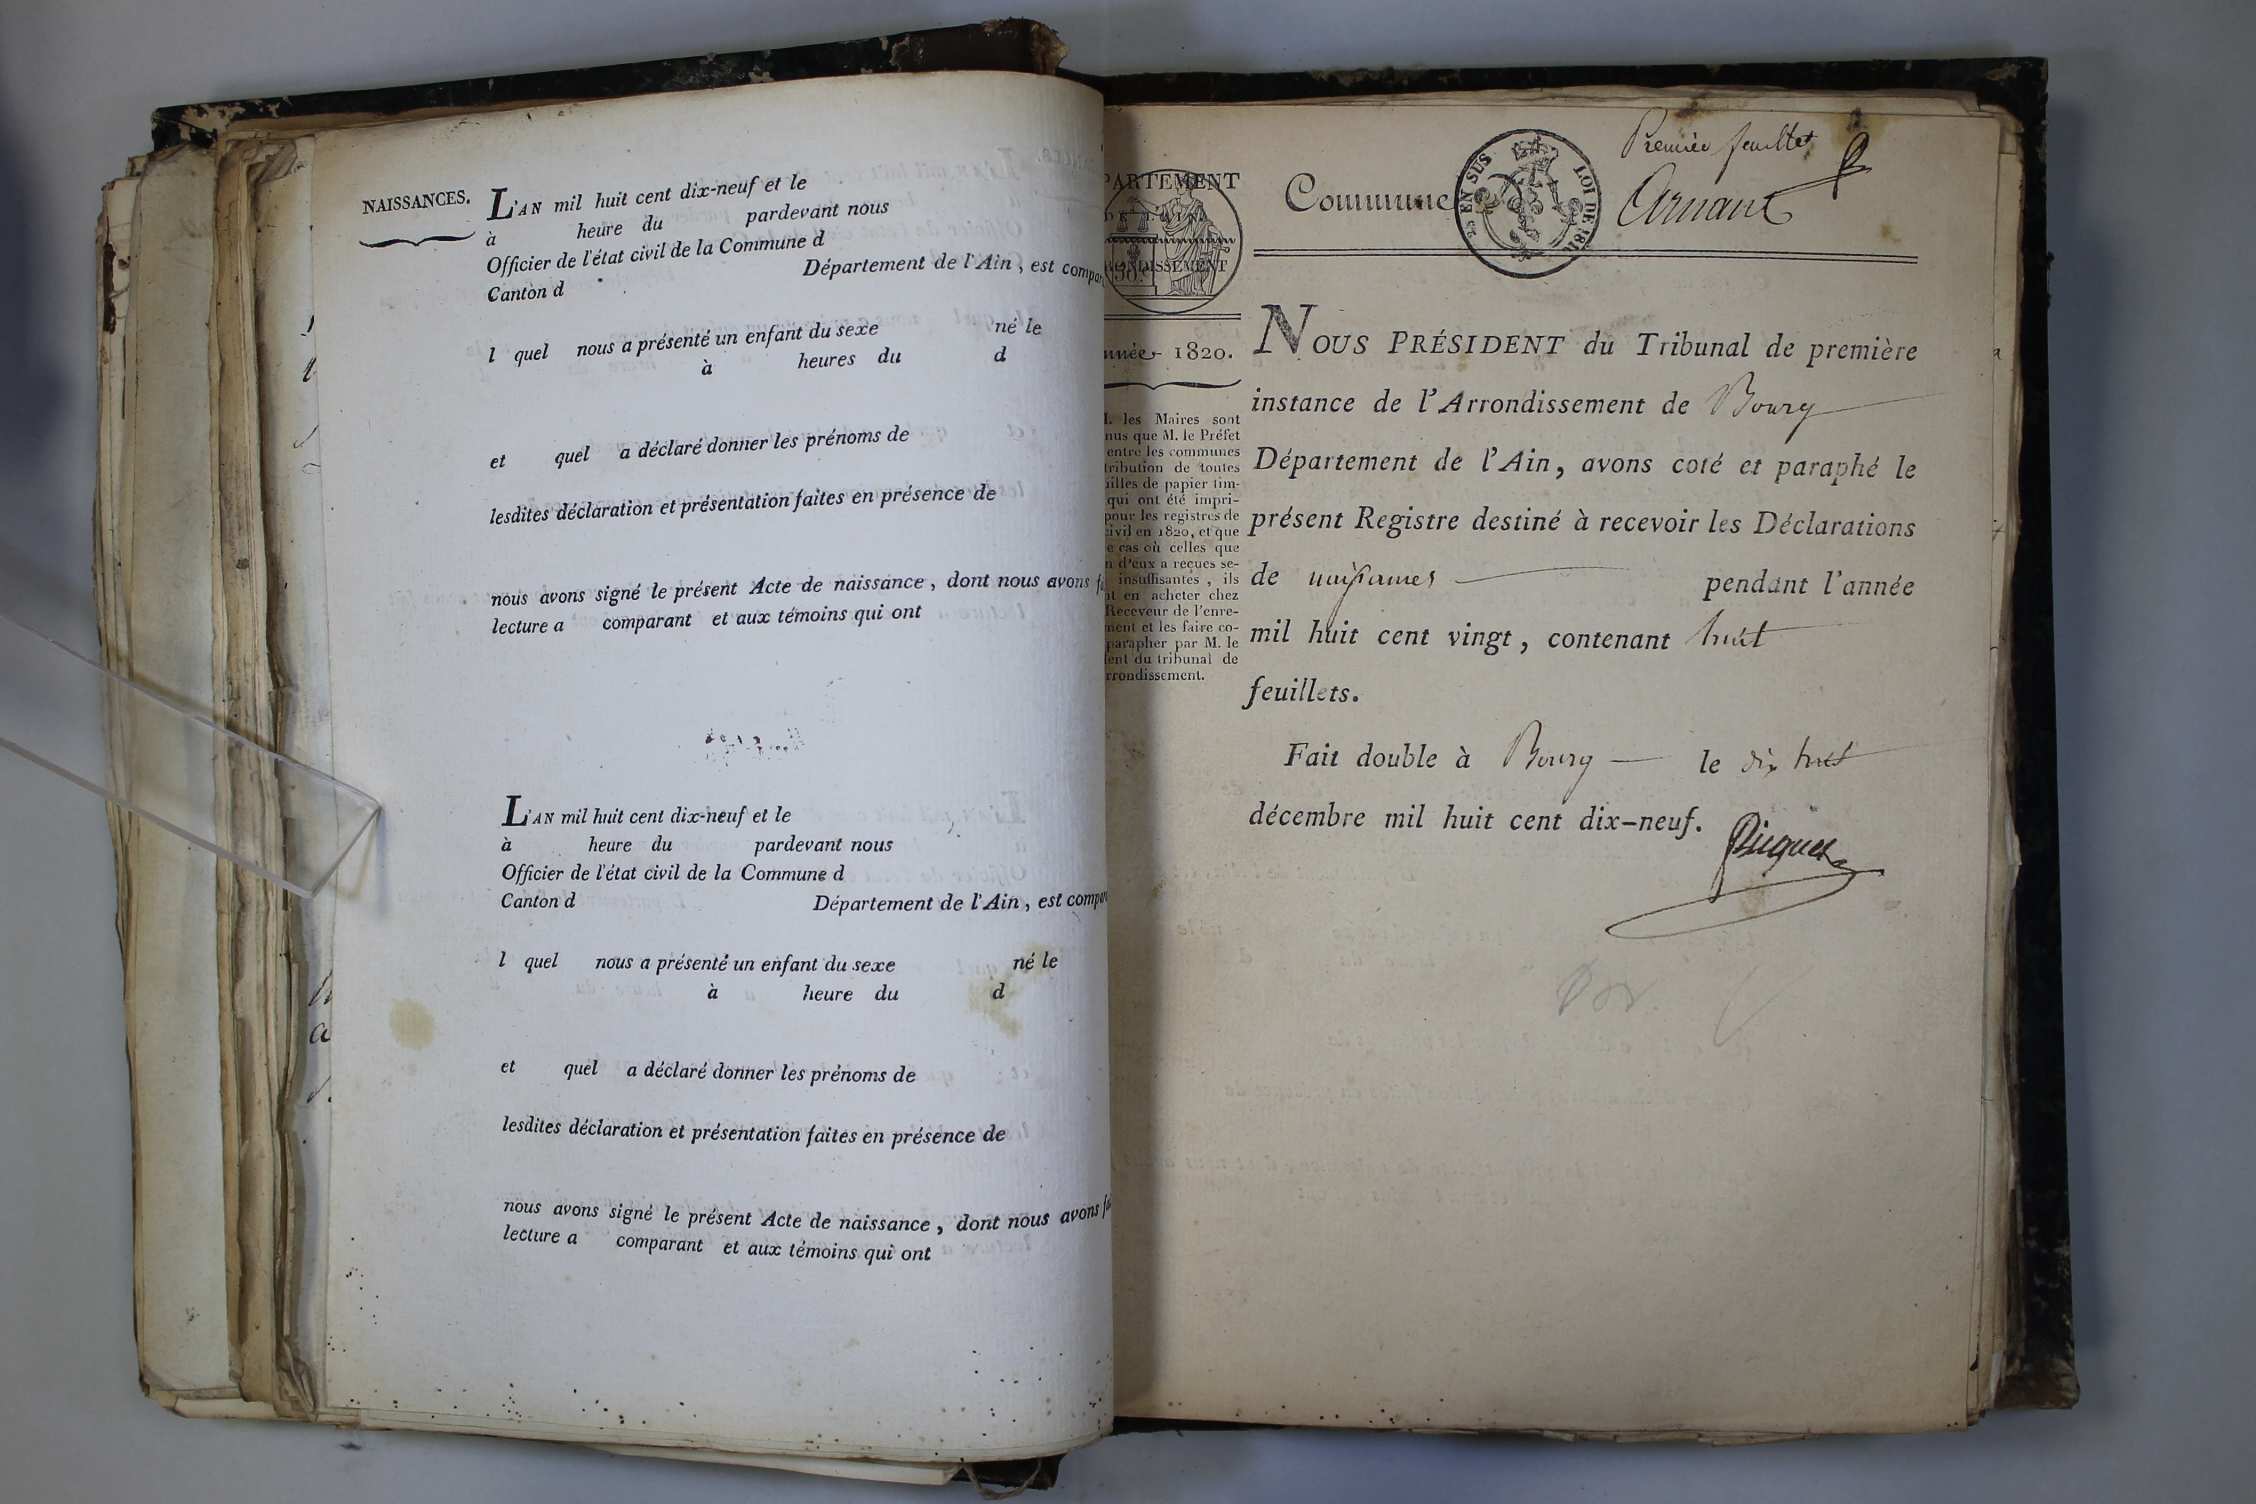 NAISSANCES.
L'AN mil huit cent dix-neuf et le
à heure du pardevant nous
Officier de l'état civil de la Commune d
Canton d Département de l'Ain, est compar
l quel nous a présenté un enfant du sexe né le
à heures du d
et quel a déclaré donner les prénoms de
lesdites déclaration et présentation faites en présence de
nous avons signé le présent Acte de naissance, dont nous avons f
lecture a comparant et aux témoins qui ont
L'AN mil huit cent dix-neuf et le
à heure du pardevant nous
Officier de l'état civil de la Commune d
Canton d Département de l'Ain, est compar
l quel nous a présenté un enfant du sexe né le
à heure du d
et quel a déclaré donner les prénoms de
lesdites déclaration et présentation faites en présence de
nous avons signé le présent Acte de naissance, dont nous avons fa
lecture a comparant et aux témoins qui ont
PARTEMENT
RONDISSEMENT
nnée 1820.
. les Maires sont
nus que M. le Préfet
entre les communes
tribution de toutes
uilles de papier tim-
qui ont été impri-
pour les registres de
civil en 1820, et que
e cas où celles que
n d'eux a reçues se-
insuffisantes, ils
nt en acheter chez
Receveur de l'enre-
ment et les faire co-
parapher par M. le
ent du tribunal de
rrondissement.
Premier feuillet
Commune
25 EN SUS LOI DE 1816
NOUS PRÉSIDENT du Tribunal de première
instance de l'Arrondissement de Bourg
Département de l'Ain, avons coté et paraphé le
présent Registre destiné à recevoir les Déclarations
de naissances pendant l'année
mil huit cent vingt, contenant huit
feuillets.
Fait double à Bourg le dix huit
décembre mil huit cent dix-neuf.
Picquet